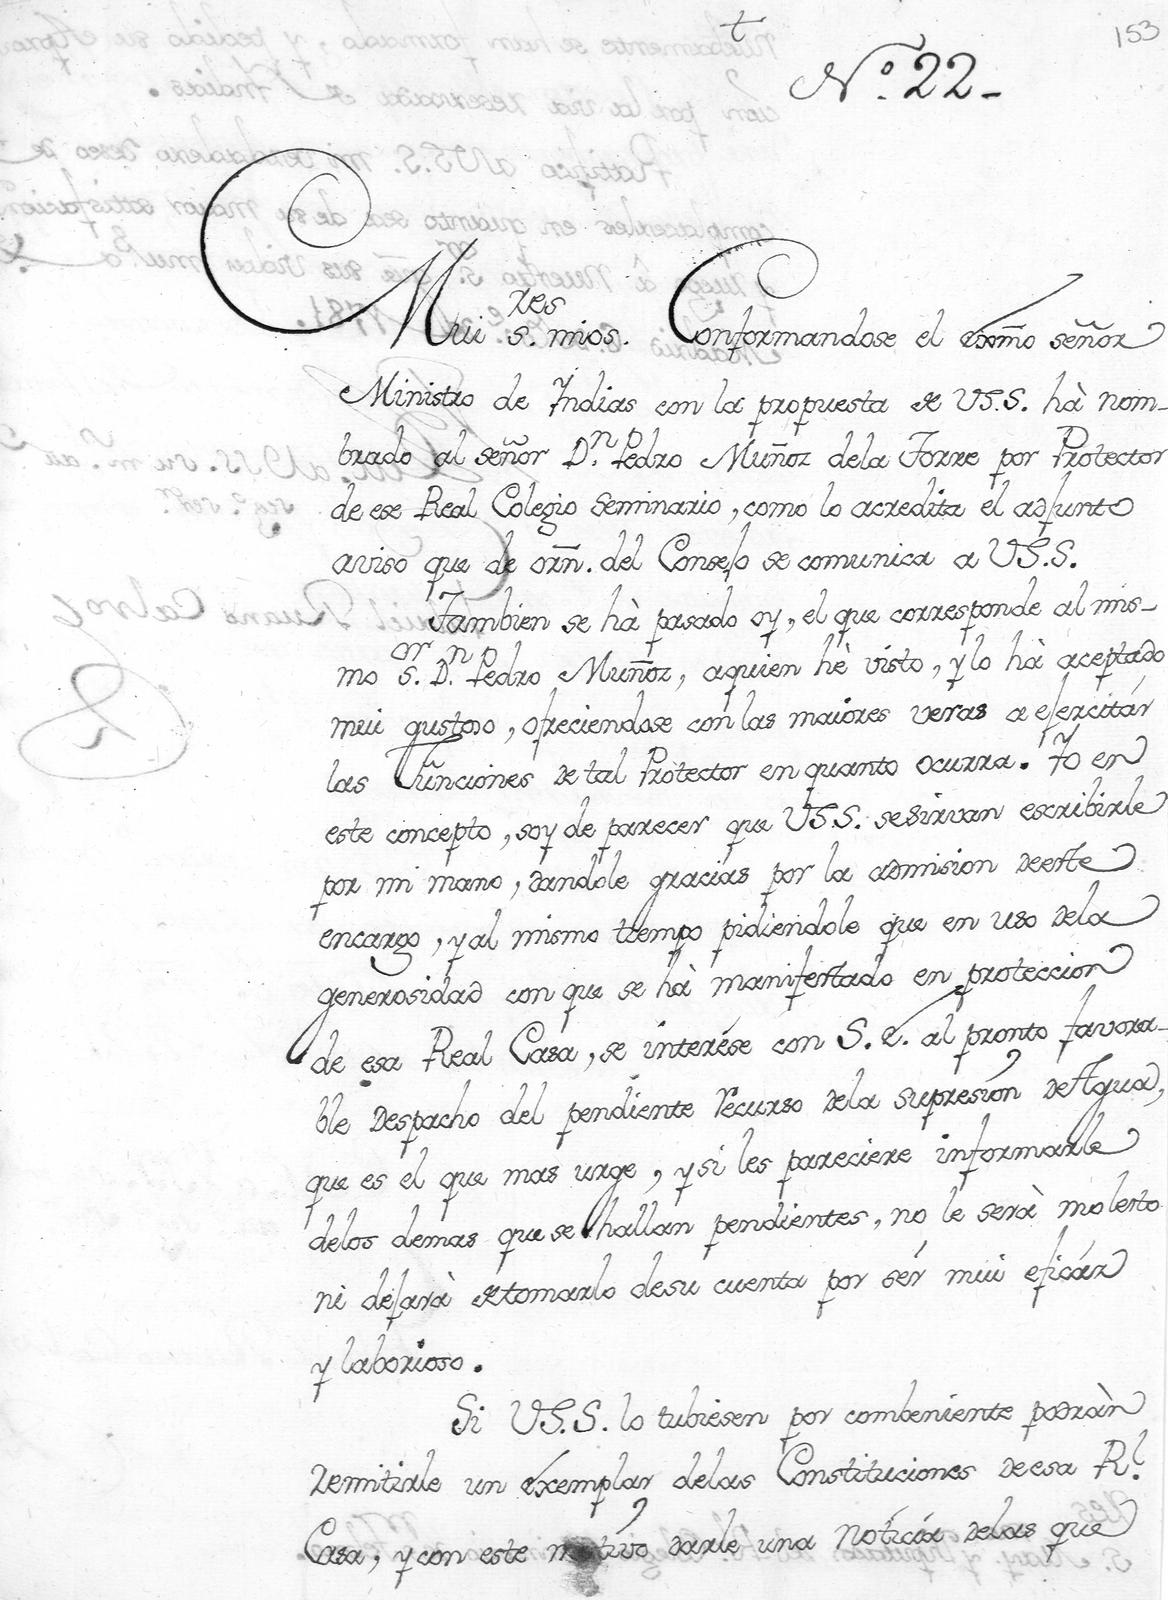 153
t
Nº. 22-
Mui s.res mios. Conformandose el exmo señor
Ministro de Indias con la propuesta de VS.S. hà nom-
brado al señor D.n Pedro Muñoz dela Torre por Protector
de ese Real Colegio Seminario, como lo acredita el adjunto
aviso que de orñ. del Consejo se comunica a VS.S.
Tambien se hà pasado oy, el que corresponde al mis-
mo s.or D.n Pedro Muñoz, aquien hè visto, y lo hà aceptado
mui gustoso, ofreciendose con las maiores veras a ejercitár
las funciones de tal Protector en quanto ocurra. Yo en
este concepto, soy de parecer que VS.S. se sirvan escribirle
por mi mano, dandole gracias por la admision de este
encargo, y al mismo tiempo pidiendole que en uso dela
generosidad con que se hà manifestado en proteccion
de esa Real Casa, se interése con S.E. al pronto favora-
ble despacho del pendiente recurso dela supresion de Agua,
que es el que mas urge, y si les pareciere informarle
delos demas que se hallan pendientes, no le serà molesto
ni dejarà de tomarlo de su cuenta por sér mui eficáz
y laborioso.
Si VS.S. lo tubiesen por combeniente podràn
remitirle un exemplar delas Constituciones de esa Rl.
Casa, y con este motivo darle una noticia delas que